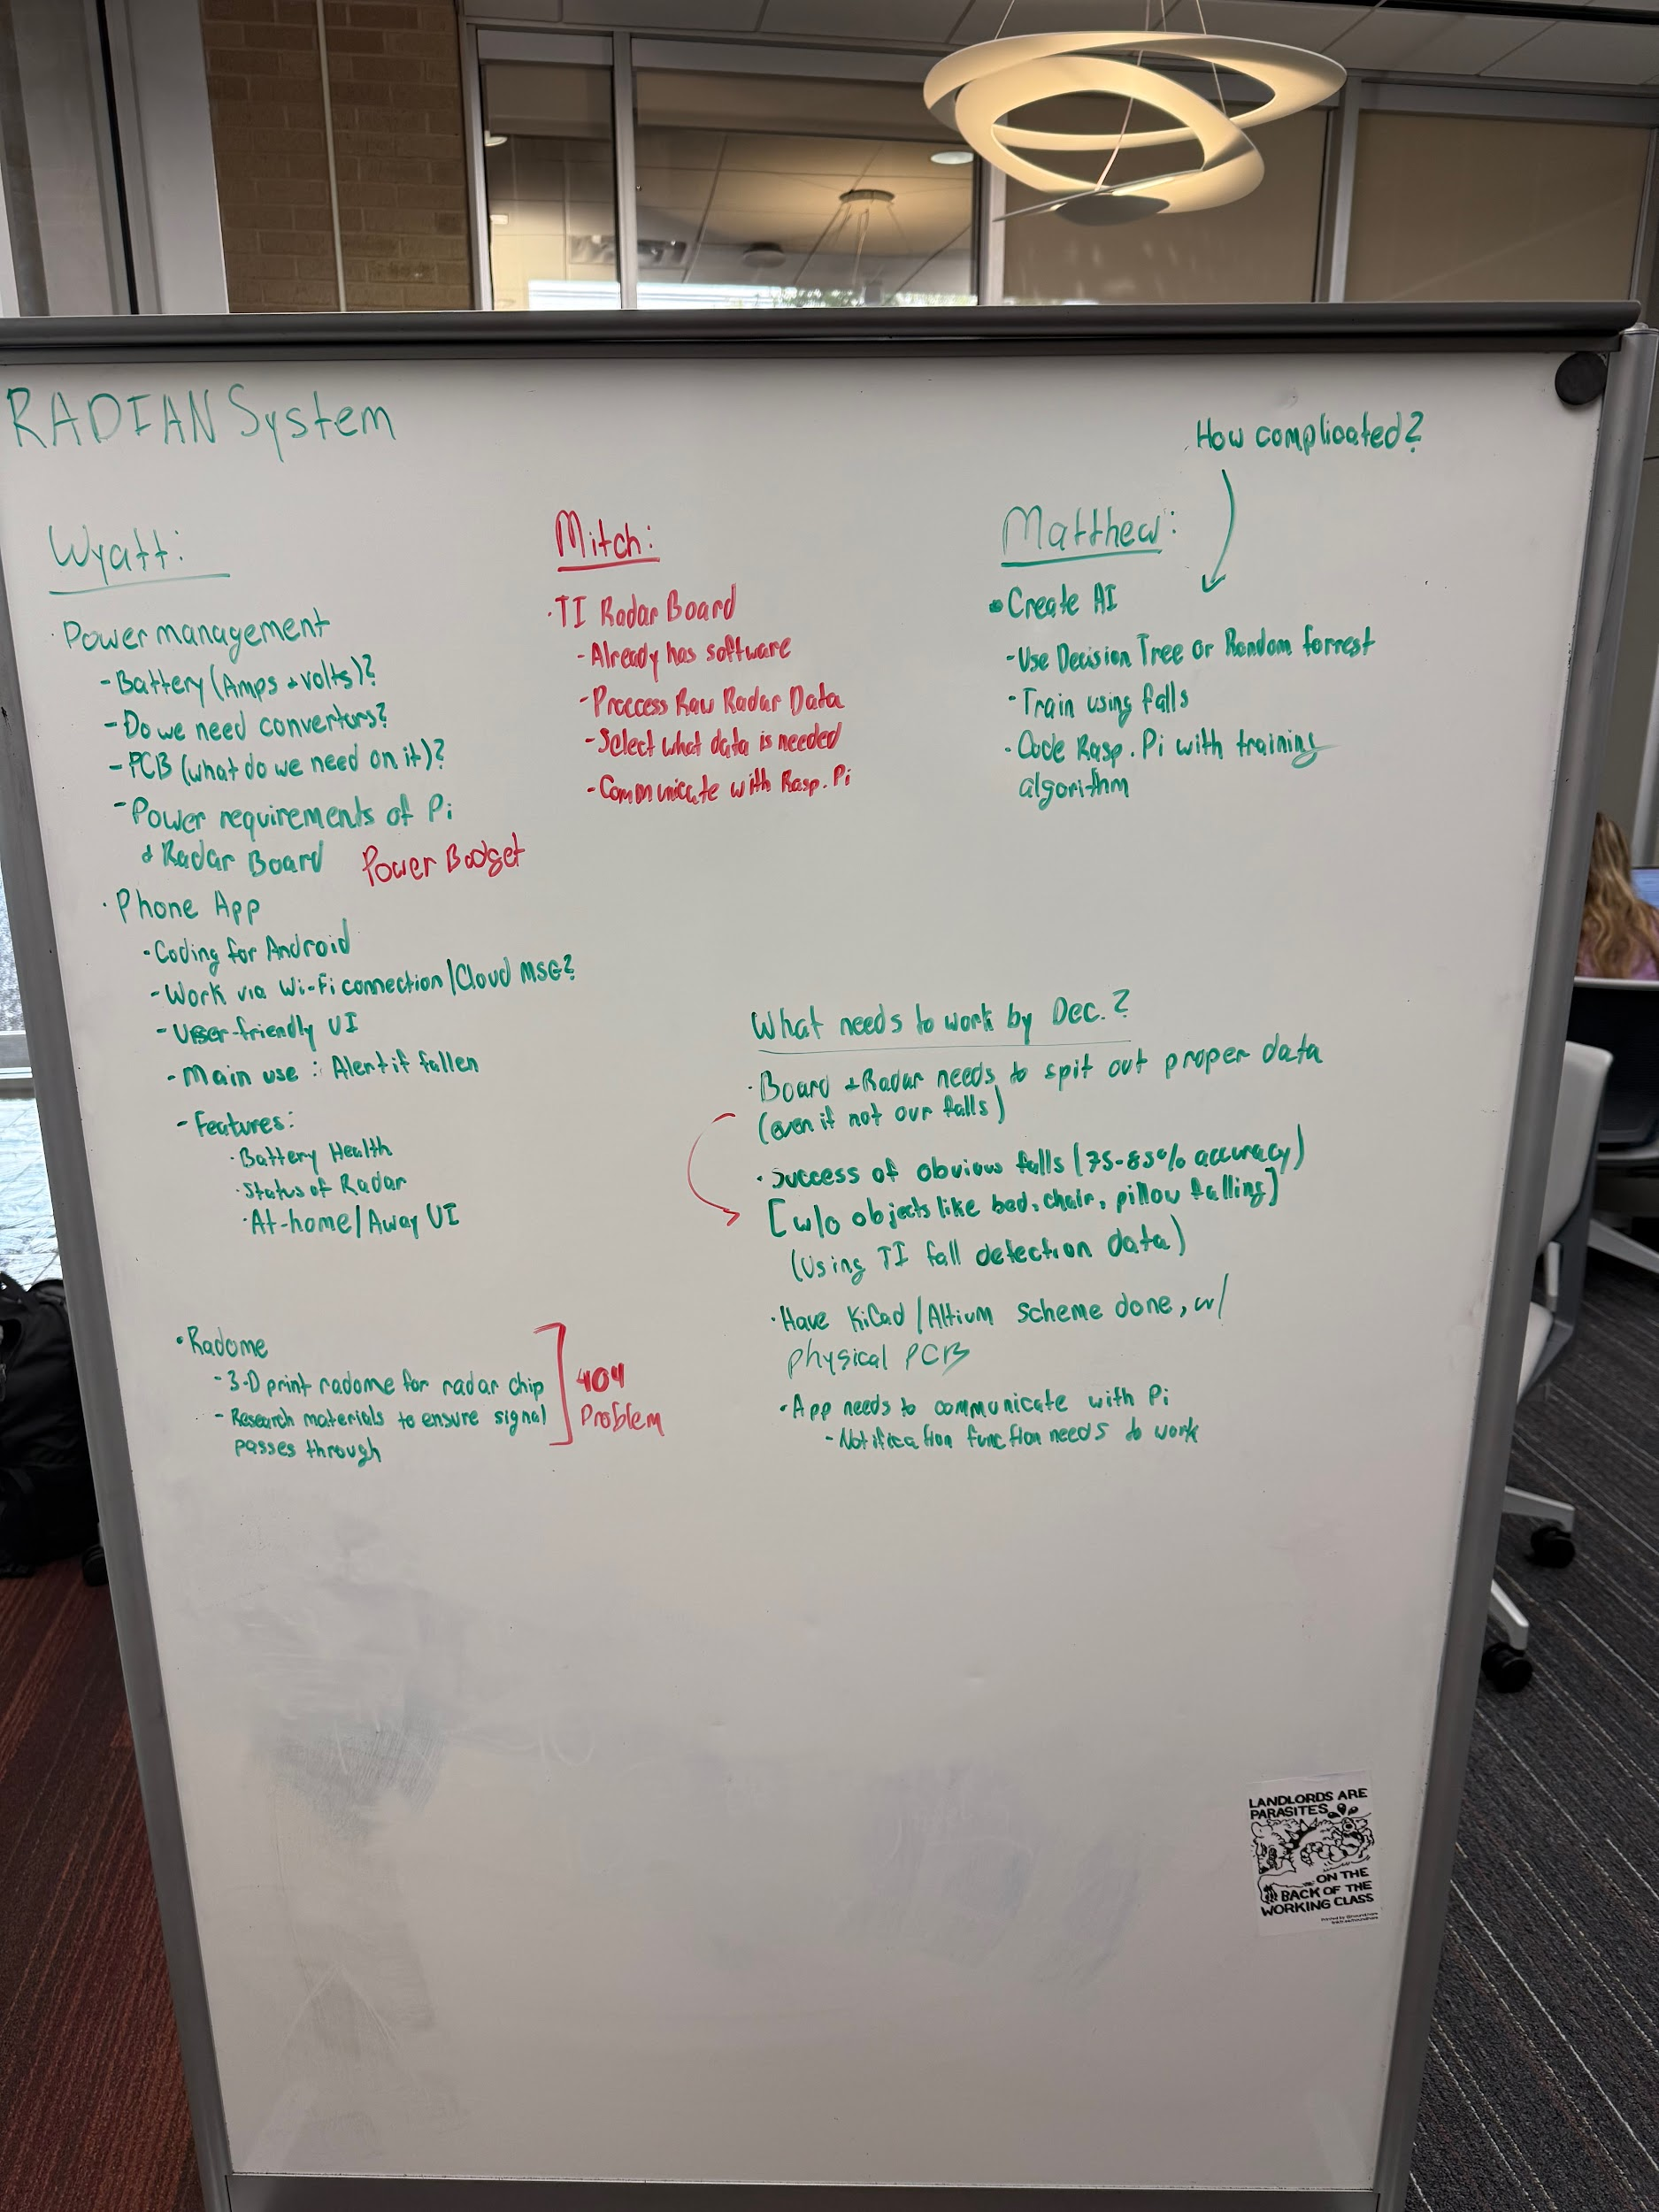 RADIAN System
How complicated?
Wyatt:
· Power management
- Battery (Amps + volts)?
- Do we need convertors?
- PCB (what do we need on it)?
- Power requirements of Pi
+ Radar Board Power Budget
· Phone App
- Coding for Android
- Work via Wi-Fi connection/Cloud MSG?
- User-friendly UI
- Main use : Alert if fallen
- Features:
· Battery Health
· Status of Radar
· At-home/Away UI
· Radome
- 3-D print radome for radar chip
- Research materials to ensure signal
passes through
404
Problem
Mitch:
· TI Radar Board
- Already has software
- Proccess Raw Radar Data
- Select what data is needed
- Communicate with Rasp. Pi
Matthew:
• Create AI
- Use Decision Tree or Random forrest
- Train using falls
- Code Rasp. Pi with training
algorithm
What needs to work by Dec.?
· Board + Radar needs to spit out proper data
(even if not our falls)
· Success of obvious falls (75-85% accuracy)
[w/o objects like bed, chair, pillow falling]
(Using TI fall detection data)
· Have KiCad/Altium scheme done, w/
physical PCB
· App needs to communicate with Pi
- Notification function needs to work
LANDLORDS ARE
PARASITES
ON THE
BACK OF THE
WORKING CLASS